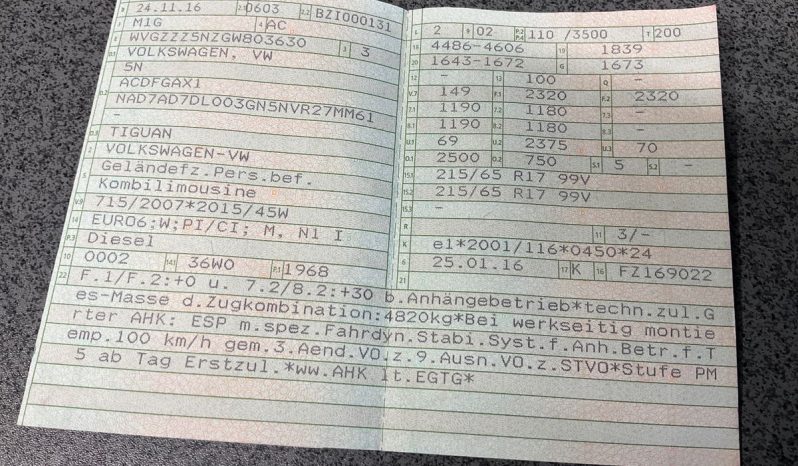 B 24.11.16 2.1 0603 2.2 BZI000131
J M1G 4 AC
E WVGZZZ5NZGW803630 3 3
D.1 VOLKSWAGEN, VW
5N
D.2 ACDFGAX1
NAD7AD7DL003GN5NVR27MM61
-
D.3 TIGUAN
2 VOLKSWAGEN-VW
5 Geländefz.Pers.bef.
Kombilimousine
V.9 715/2007*2015/45W
14 EURO6;W;PI/CI; M, N1 I
P.3 Diesel
10 0002 14.1 36W0 P.1 1968
L 2 9 02 P.2 P.4 110 /3500 T 200
18 4486-4606 19 1839
20 1643-1672 G 1673
12 - 13 100 Q -
V.7 149 F.1 2320 F.2 2320
7.1 1190 7.2 1180 7.3 -
8.1 1190 8.2 1180 8.3 -
U.1 69 U.2 2375 U.3 70
O.1 2500 O.2 750 S.1 5 S.2 -
15.1 215/65 R17 99V
15.2 215/65 R17 99V
15.3 -
R 11 3/-
K e1*2001/116*0450*24
6 25.01.16 17 K 16 FZ169022
21
22 F.1/F.2:+0 u. 7.2/8.2:+30 b.Anhängebetrieb*techn.zul.G
es-Masse d.Zugkombination:4820kg*Bei werkseitig montie
rter AHK: ESP m.spez.Fahrdyn.Stabi.Syst.f.Anh.Betr.f.T
emp.100 km/h gem.3.Aend.VO.z.9.Ausn.VO.z.STVO*Stufe PM
5 ab Tag Erstzul.*ww.AHK lt.EGTG*